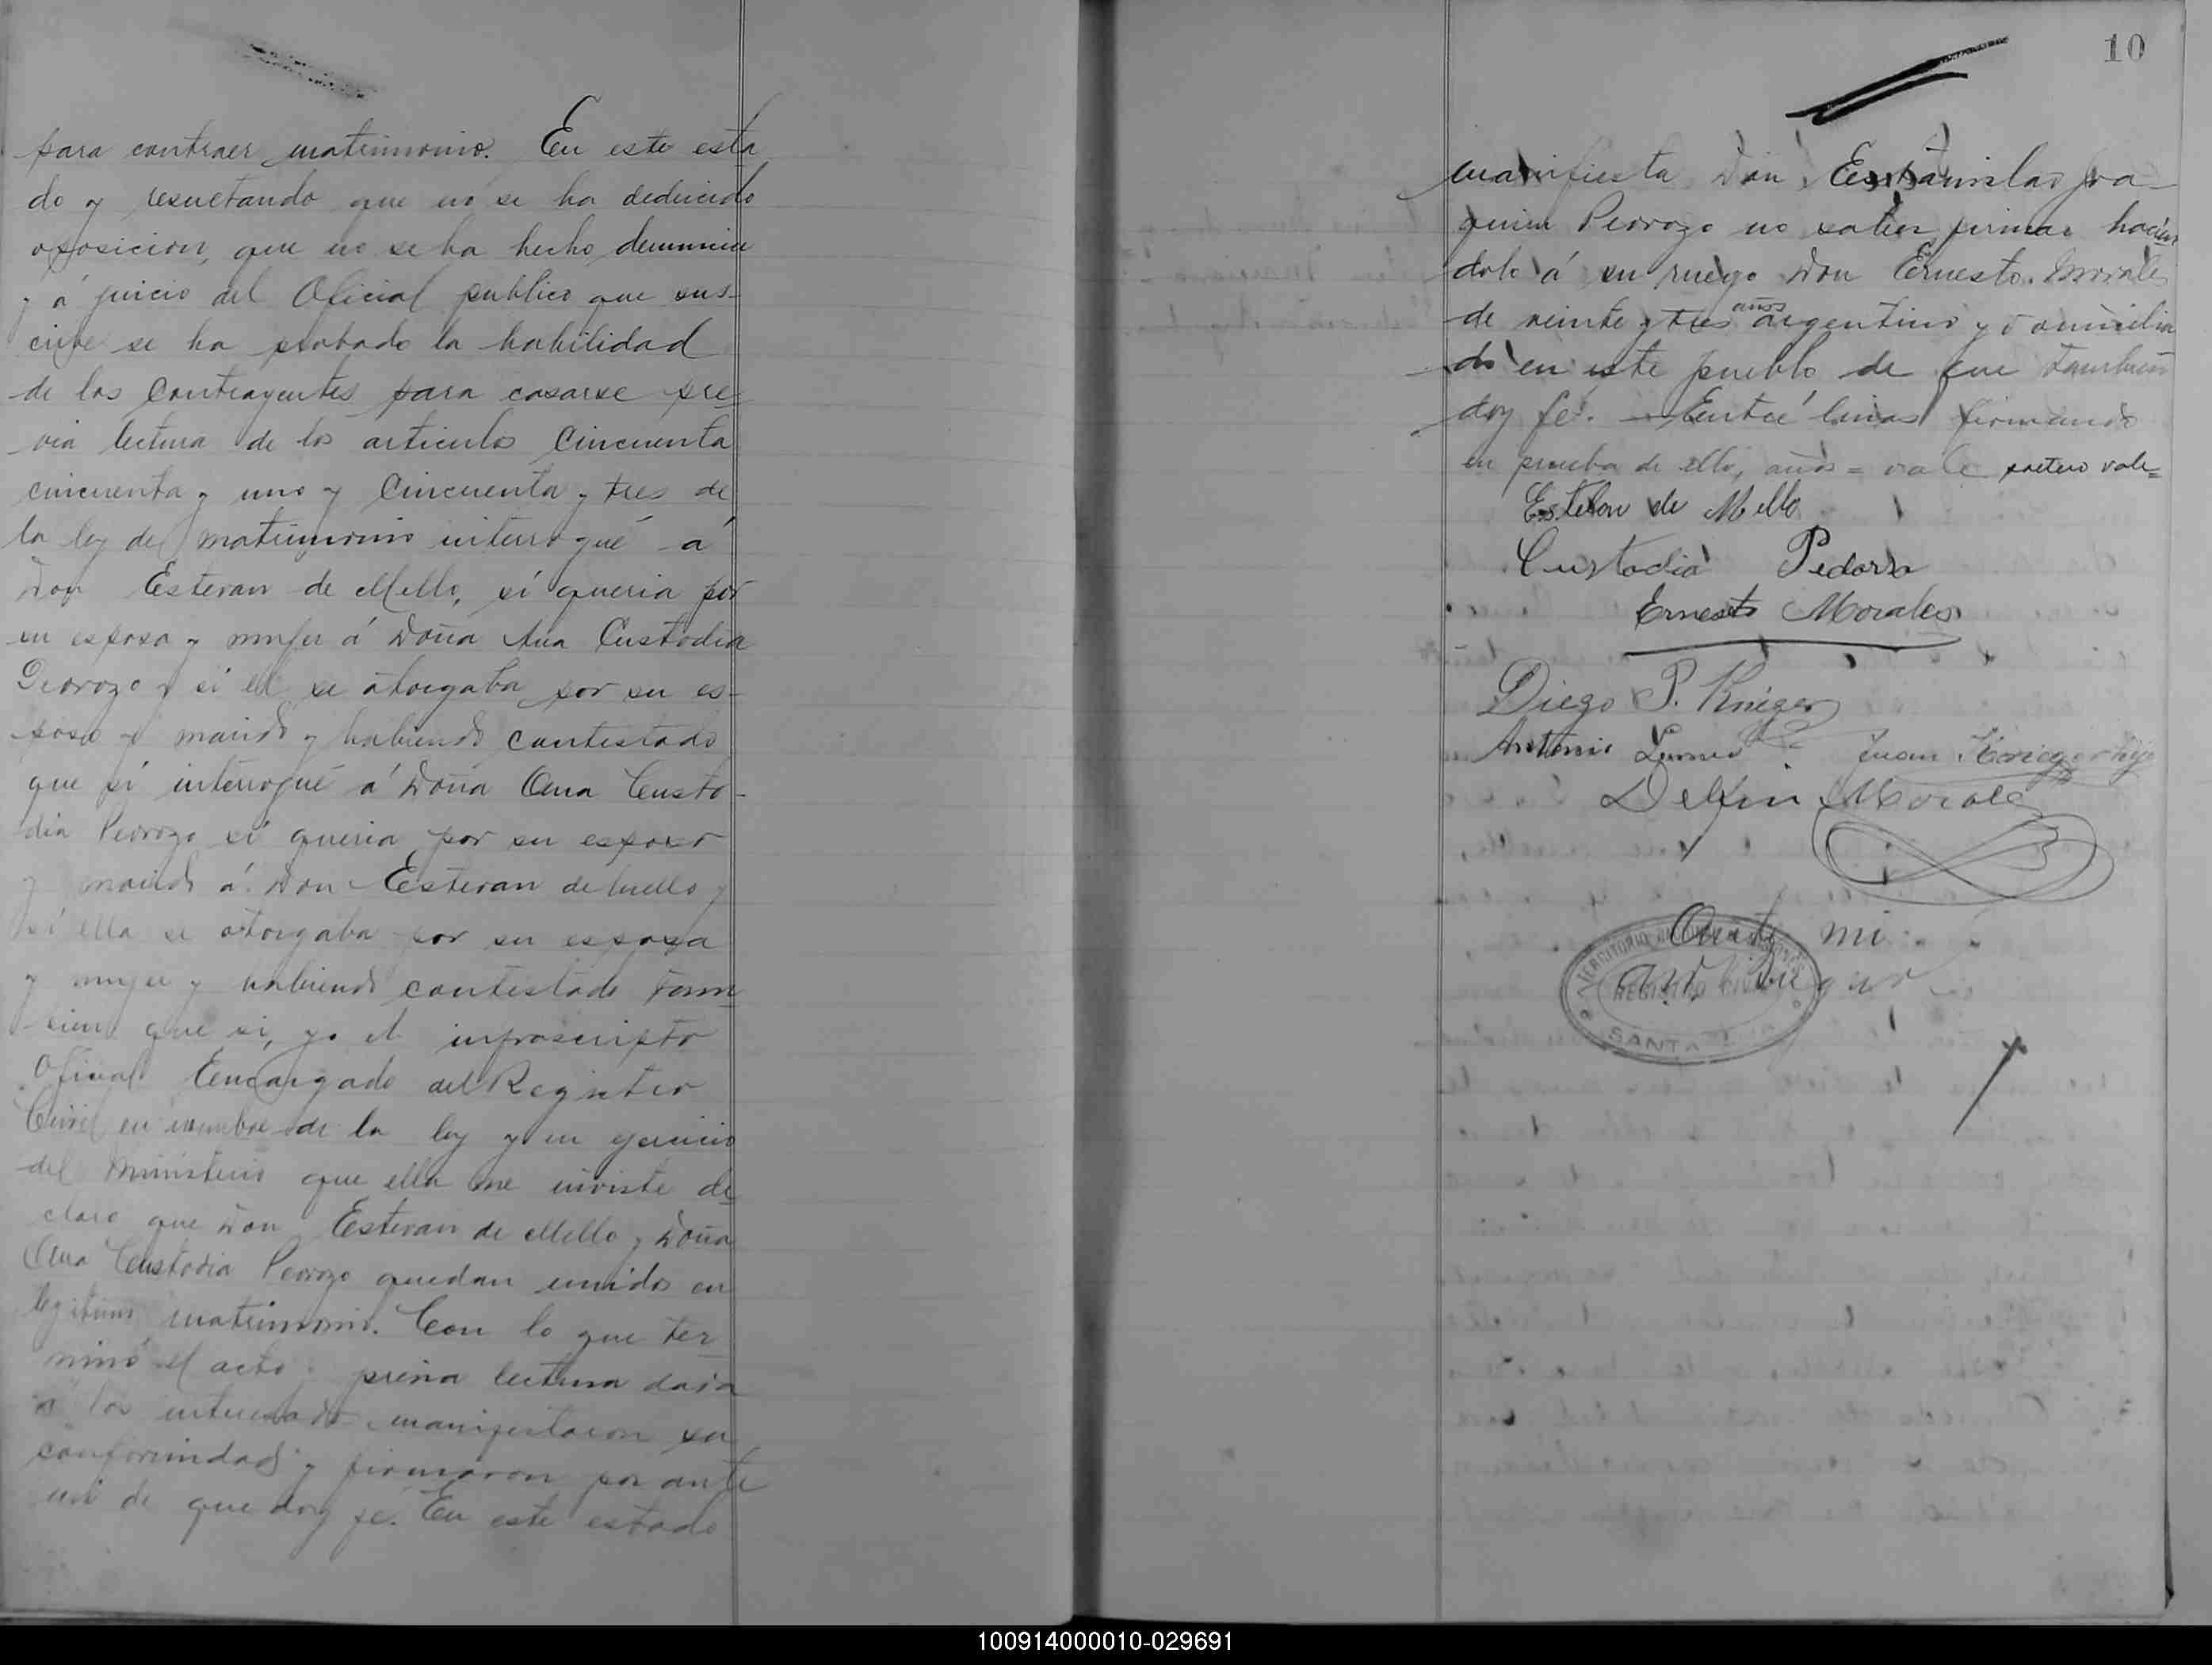 para contraer matrimonio. En este esta
do y resultando que no se ha deducido
oposicion, que no se ha hecho denuncia
y á juicio del Oficial publico que sus-
cribe se ha probado la habilidad
de los contrayentes para casarse pre-
via lectura de los articulos cincuenta
cincuenta y uno y cincuenta y tres de
la ley de matrimonio interrogué á
Don Estevan de Mello, si queria por
su esposa y mujer á Doña Ana Custodia
Pedrozo y si el se otorgaba por su es-
poso y marido y habiendo contestado
que si interrogué á Doña Ana Custo-
dia Pedrozo si queria por su esposo
y marido á Don Estevan de Mello y
si ella se otorgaba por su esposa
y mujer y habiendo contestado tam
bien que si, yo el infrascripto
Oficial Encargado del Registro
Civil en nombre de la ley y en ejercicio
del ministerio que ella me inviste de
claro que Don Estevan de Mello y Doña
Ana Custodia Pedrozo quedan unidos en
legitimo matrimonio. Con lo que ter
minó el acto previa lectura dada
á los interesados manifestaron su
conformidad y firmaron por ante
mi de que doy fé. En este estado
10
manifiesta Don Estanislao Joa-
quin Pedrozo no saber firmar hacien
dolo á su ruego Don Ernesto Morales
de veinte y tres años argentino y domicilia
do en este pueblo de que tambien
doy fé. Entre lineas firmando
en prueba de ello, años = vale soltero vale=
Esteban de Mello
Custodia Pedorro
Ernesto Morales
Diego P. Krieger
Antonio Juan Krieger hijo
Delfin Morales
Ante mi
TERRITORIO NACIONAL DE MISIONES
REGISTRO CIVIL
SANTA
100914000010-029691